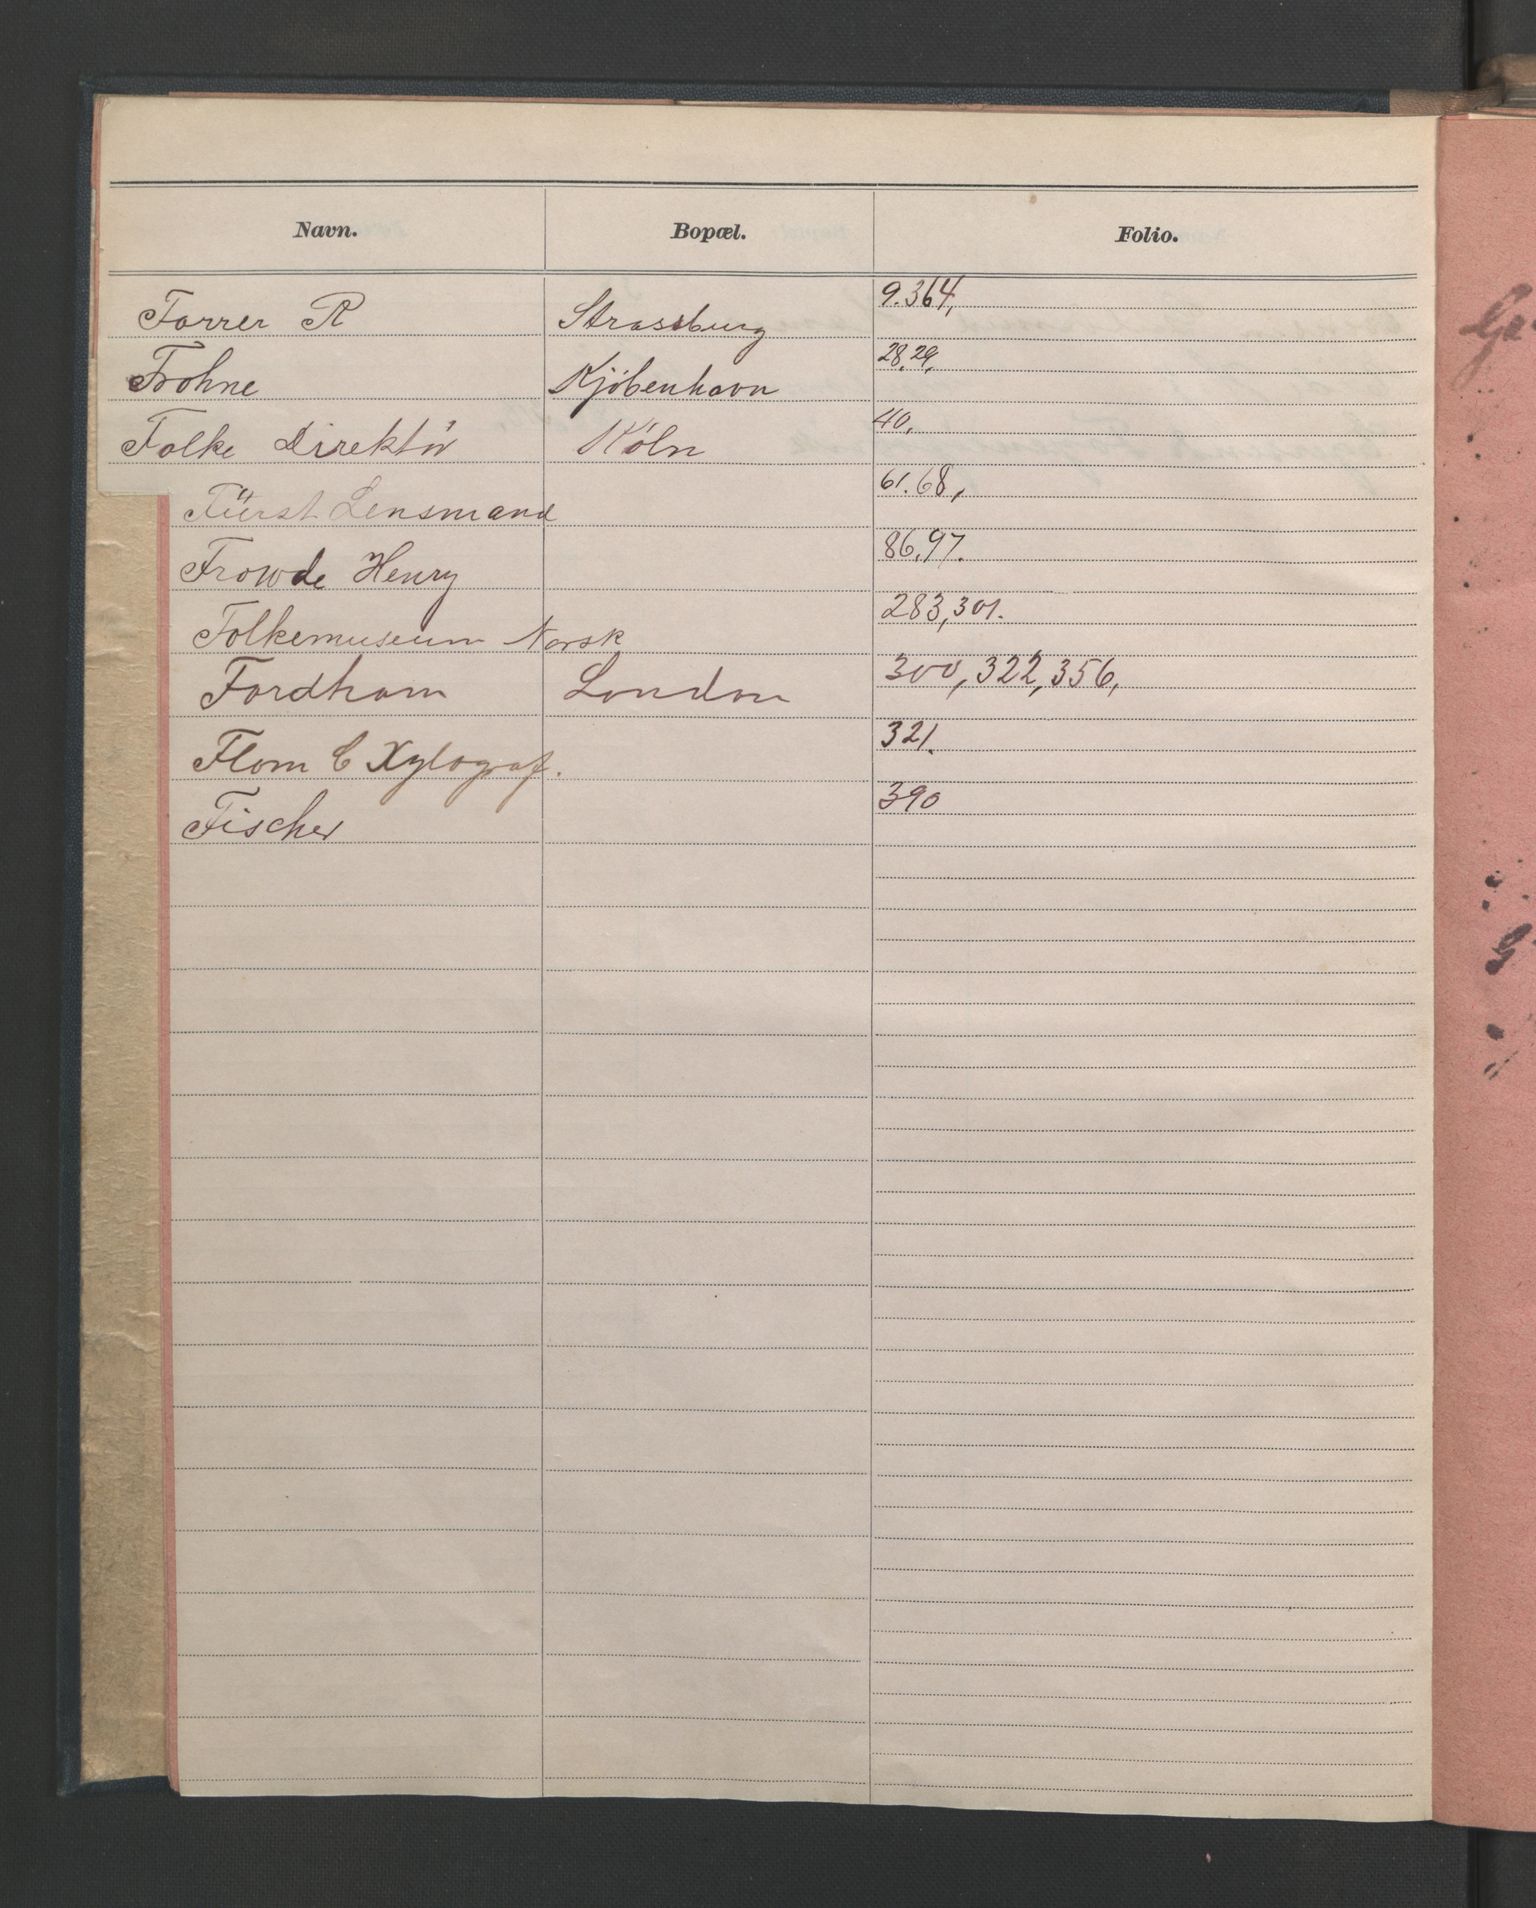 Navn. Bopæl. Folio.
Forrer R Strassburg 9.364,
Frohne Kjöbenhavn 28.29.
Folke Direktör Köln 40.
Fürst Lensmand 61.68,
Frowde Henry 86.97.
Folkemuseum Norsk 283,301.
Fordham London 300,322,356,
Flom C Xylograf. 321.
Fischer 390